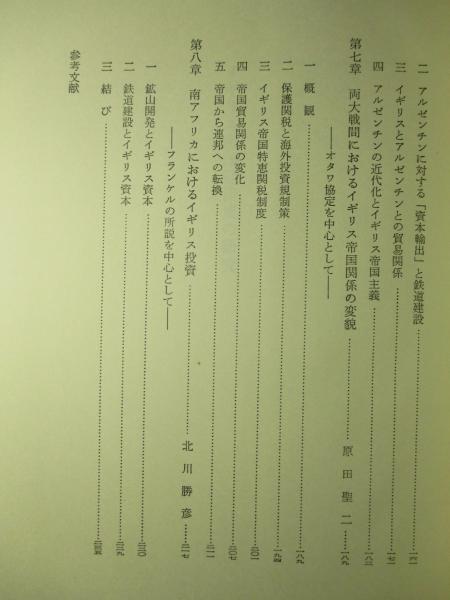 二 アルゼンチンに対する「資本輸出」と鉄道建設……一六一
三 イギリスとアルゼンチンとの貿易関係……一七一
四 アルゼンチンの近代化とイギリス帝国主義……一八二
第七章 両大戦間におけるイギリス帝国関係の変貌……原田聖二……一八九
――オタワ協定を中心として――
一 概観……一八九
二 保護関税と海外投資規制策……一九四
三 イギリス帝国特恵関税制度……二〇一
四 帝国貿易関係の変化……二〇七
五 帝国から連邦への転換……二一一
第八章 南アフリカにおけるイギリス投資……北川勝彦……二一七
――フランケルの所説を中心として――
一 鉱山開発とイギリス資本……二二〇
二 鉄道建設とイギリス資本……二二九
三 結び……二三五
参考文献